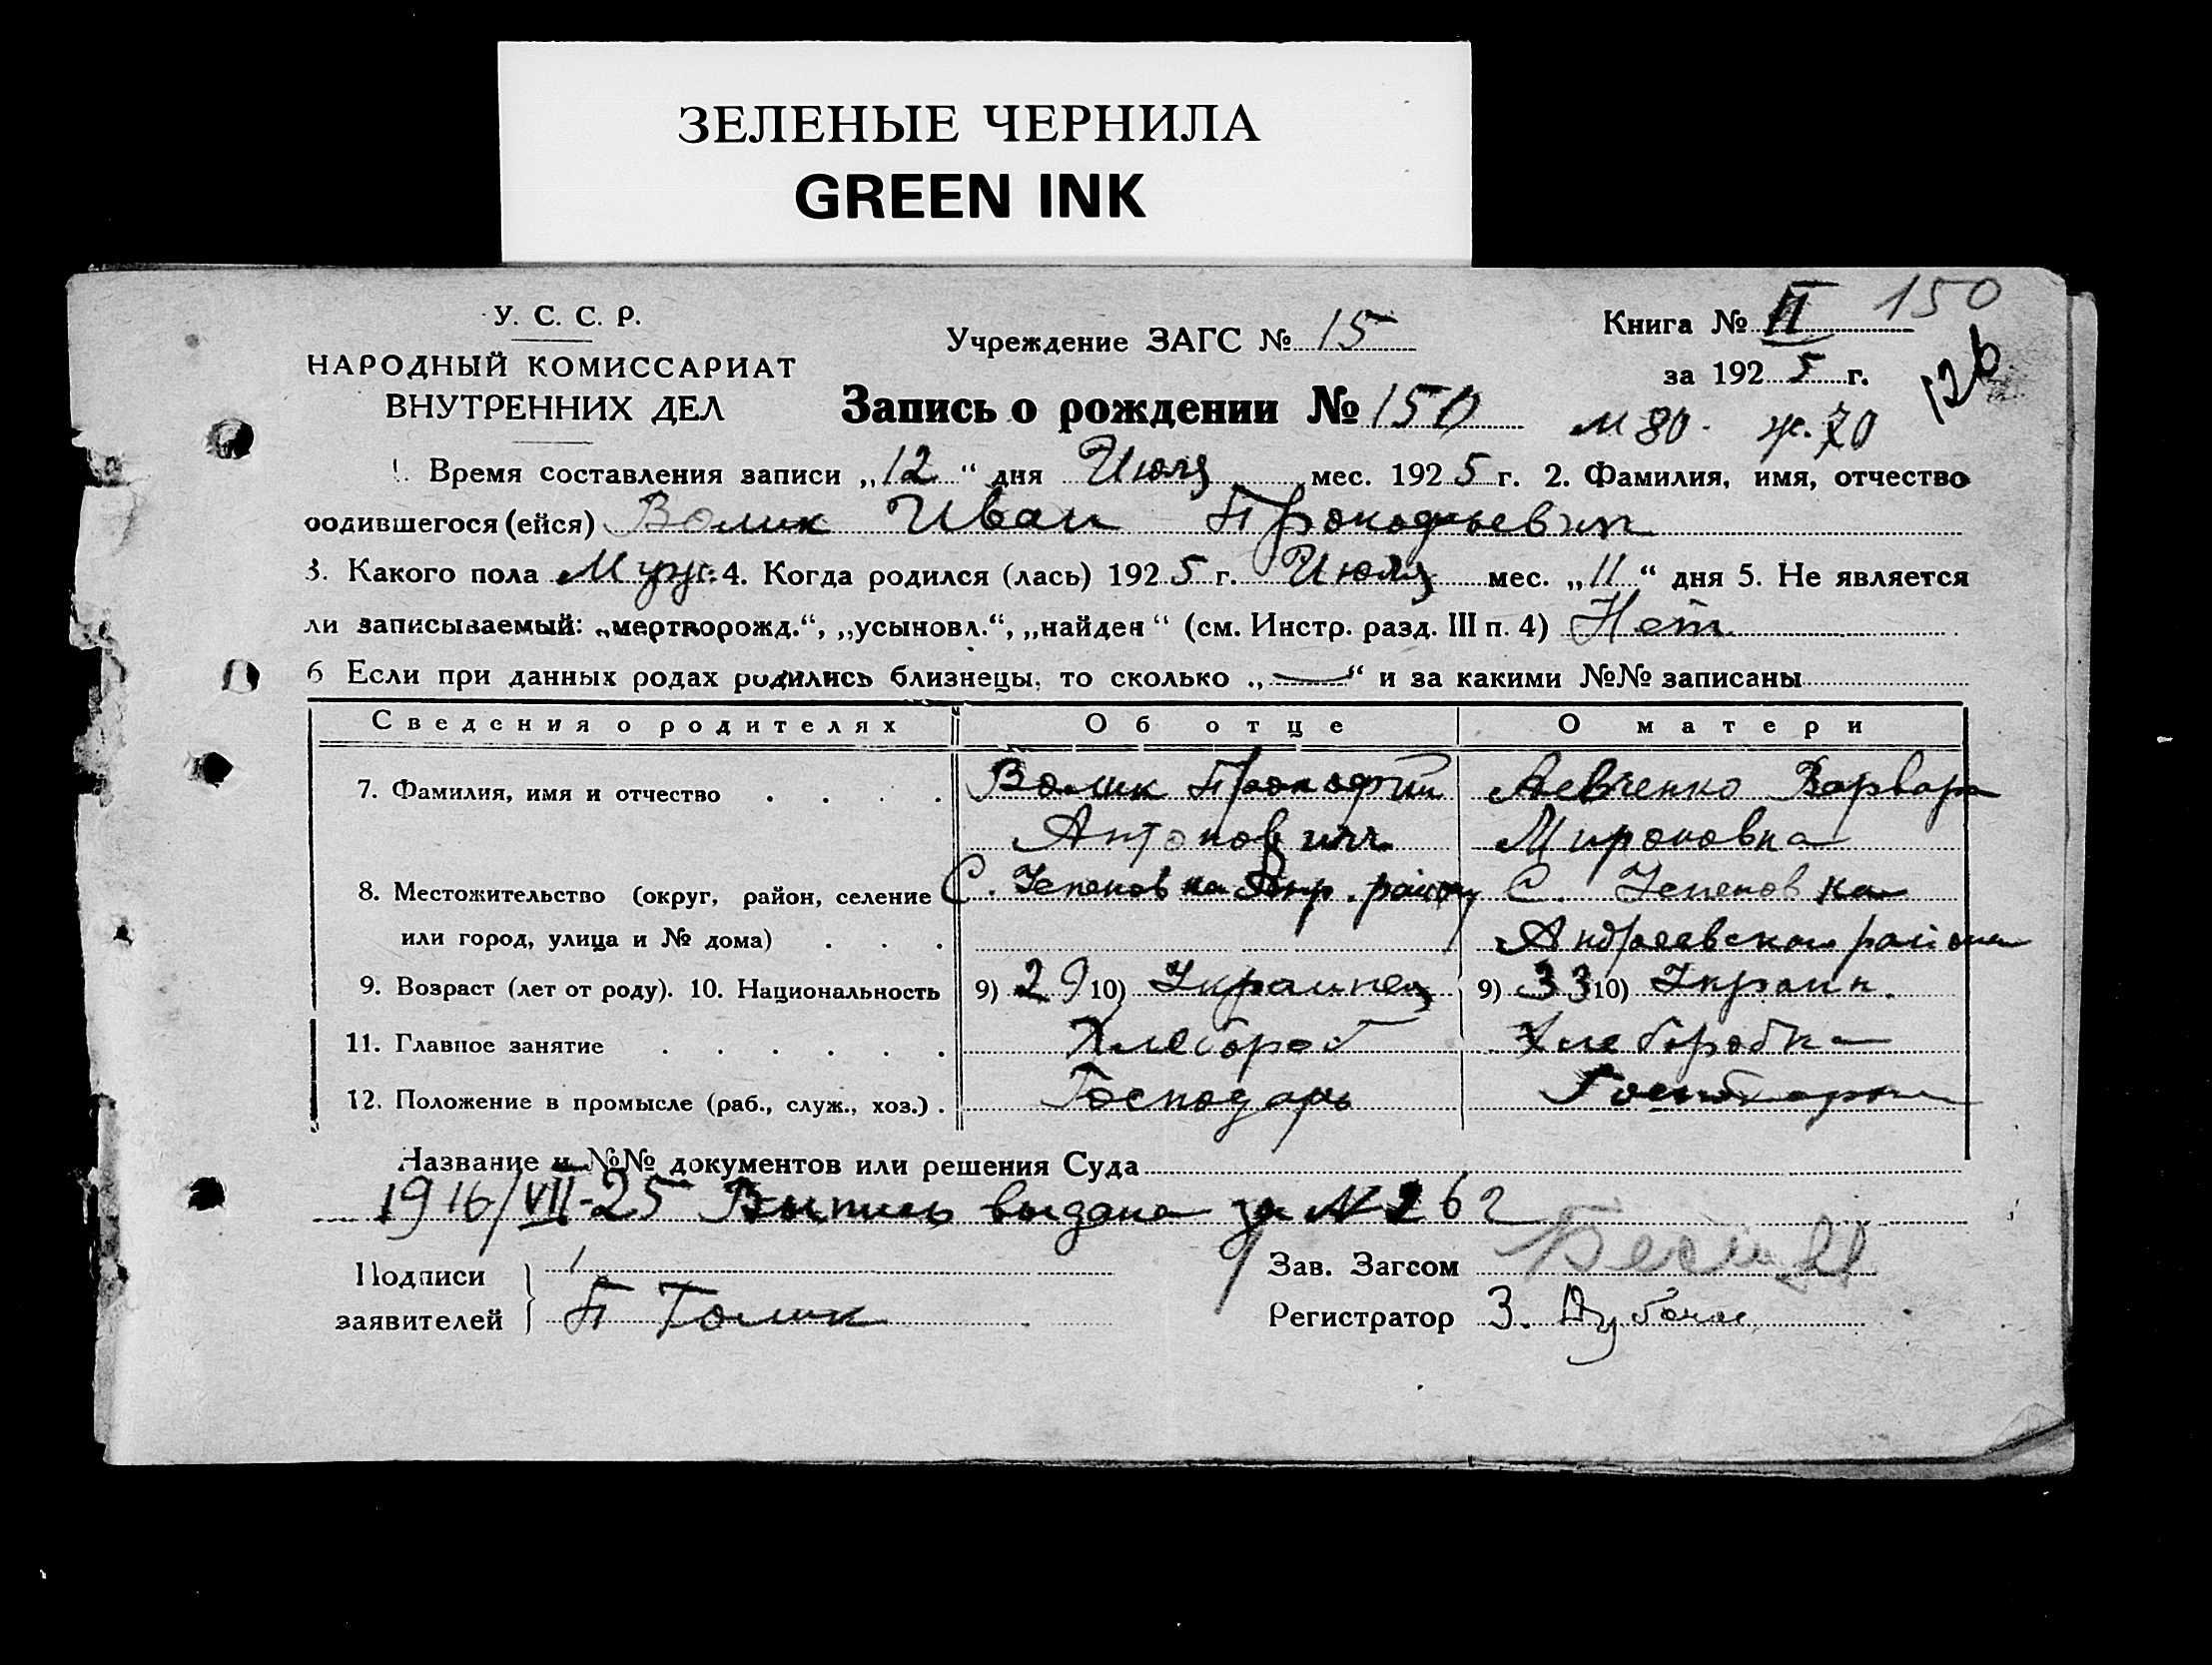 ЗЕЛЕНЫЕ ЧЕРНИЛА
GREEN INK
У. С. С. Р.
НАРОДНЫЙ КОМИССАРИАТ
ВНУТРЕННИХ ДЕЛ
Учреждение ЗАГС № 15
Книга № II 150
за 1925 г.
126
Запись о рождении № 150
м 80. ж. 70
1. Время составления записи „12“ дня Июля мес. 1925 г. 2. Фамилия, имя, отчество
родившегося (ейся) Волик Иван Прокофьевич
3. Какого пола Муж. 4. Когда родился (лась) 1925 г. Июля мес. „11“ дня 5. Не является
ли записываемый: „мертворожд.“, „усыновл.“, „найден“ (см. Инстр. разд. III п. 4) Нет
6 Если при данных родах родились близнецы, то сколько „—“ и за какими №№ записаны
Сведения о родителях Об отце О матери
7. Фамилия, имя и отчество Волик Прокофий Левченко Варвара
Антонович Мироновна
8. Местожительство (округ, район, селение С. Успеновка району С. Успеновка
или город, улица и № дома) Андреевского района
9. Возраст (лет от роду). 10. Национальность 9) 29 10) Украинец 9) 33 10) Украин.
11. Главное занятие Хлебороб Хлеборобка
12. Положение в промысле (раб., служ., хоз.) Господарь
Название и №№ документов или решения Суда
19 16/VII-25 Выпись выдана за № 262
Подписи
заявителей П Голик
Зав. Загсом
Регистратор З.